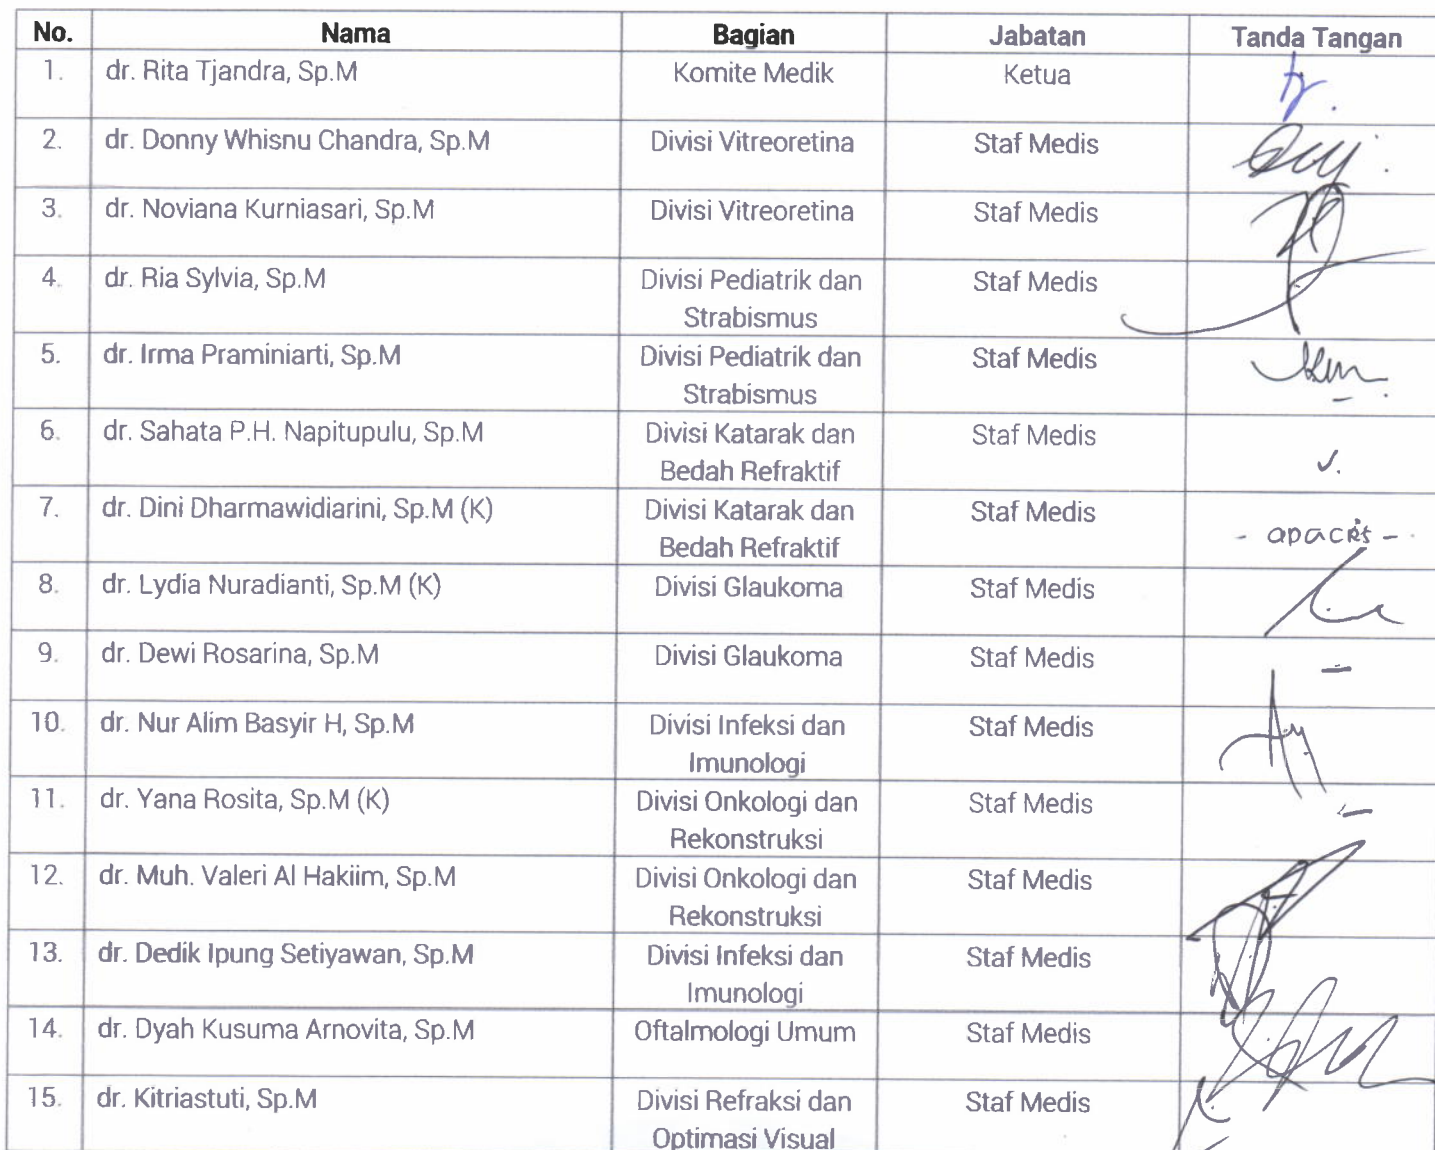 No. Nama Bagian Jabatan Tanda Tangan
1. dr. Rita Tjandra, Sp.M Komite Medik Ketua
2. dr. Donny Whisnu Chandra, Sp.M Divisi Vitreoretina Staf Medis
3. dr. Noviana Kurniasari, Sp.M Divisi Vitreoretina Staf Medis
4. dr. Ria Sylvia, Sp.M Divisi Pediatrik dan Staf Medis
Strabismus
5. dr. Irma Praminiarti, Sp.M Divisi Pediatrik dan Staf Medis
Strabismus
6. dr. Sahata P.H. Napitupulu, Sp.M Divisi Katarak dan Staf Medis
Bedah Refraktif
7. dr. Dini Dharmawidiarini, Sp.M (K) Divisi Katarak dan Staf Medis
Bedah Refraktif
8. dr. Lydia Nuradianti, Sp.M (K) Divisi Glaukoma Staf Medis
9. dr. Dewi Rosarina, Sp.M Divisi Glaukoma Staf Medis
10. dr. Nur Alim Basyir H, Sp.M Divisi Infeksi dan Staf Medis
Imunologi
11. dr. Yana Rosita, Sp.M (K) Divisi Onkologi dan Staf Medis
Rekonstruksi
12. dr. Muh. Valeri Al Hakiim, Sp.M Divisi Onkologi dan Staf Medis
Rekonstruksi
13. dr. Dedik Ipung Setiyawan, Sp.M Divisi Infeksi dan Staf Medis
Imunologi
14. dr. Dyah Kusuma Arnovita, Sp.M Oftalmologi Umum Staf Medis
15. dr. Kitriastuti, Sp.M Divisi Refraksi dan Staf Medis
Optimasi Visual